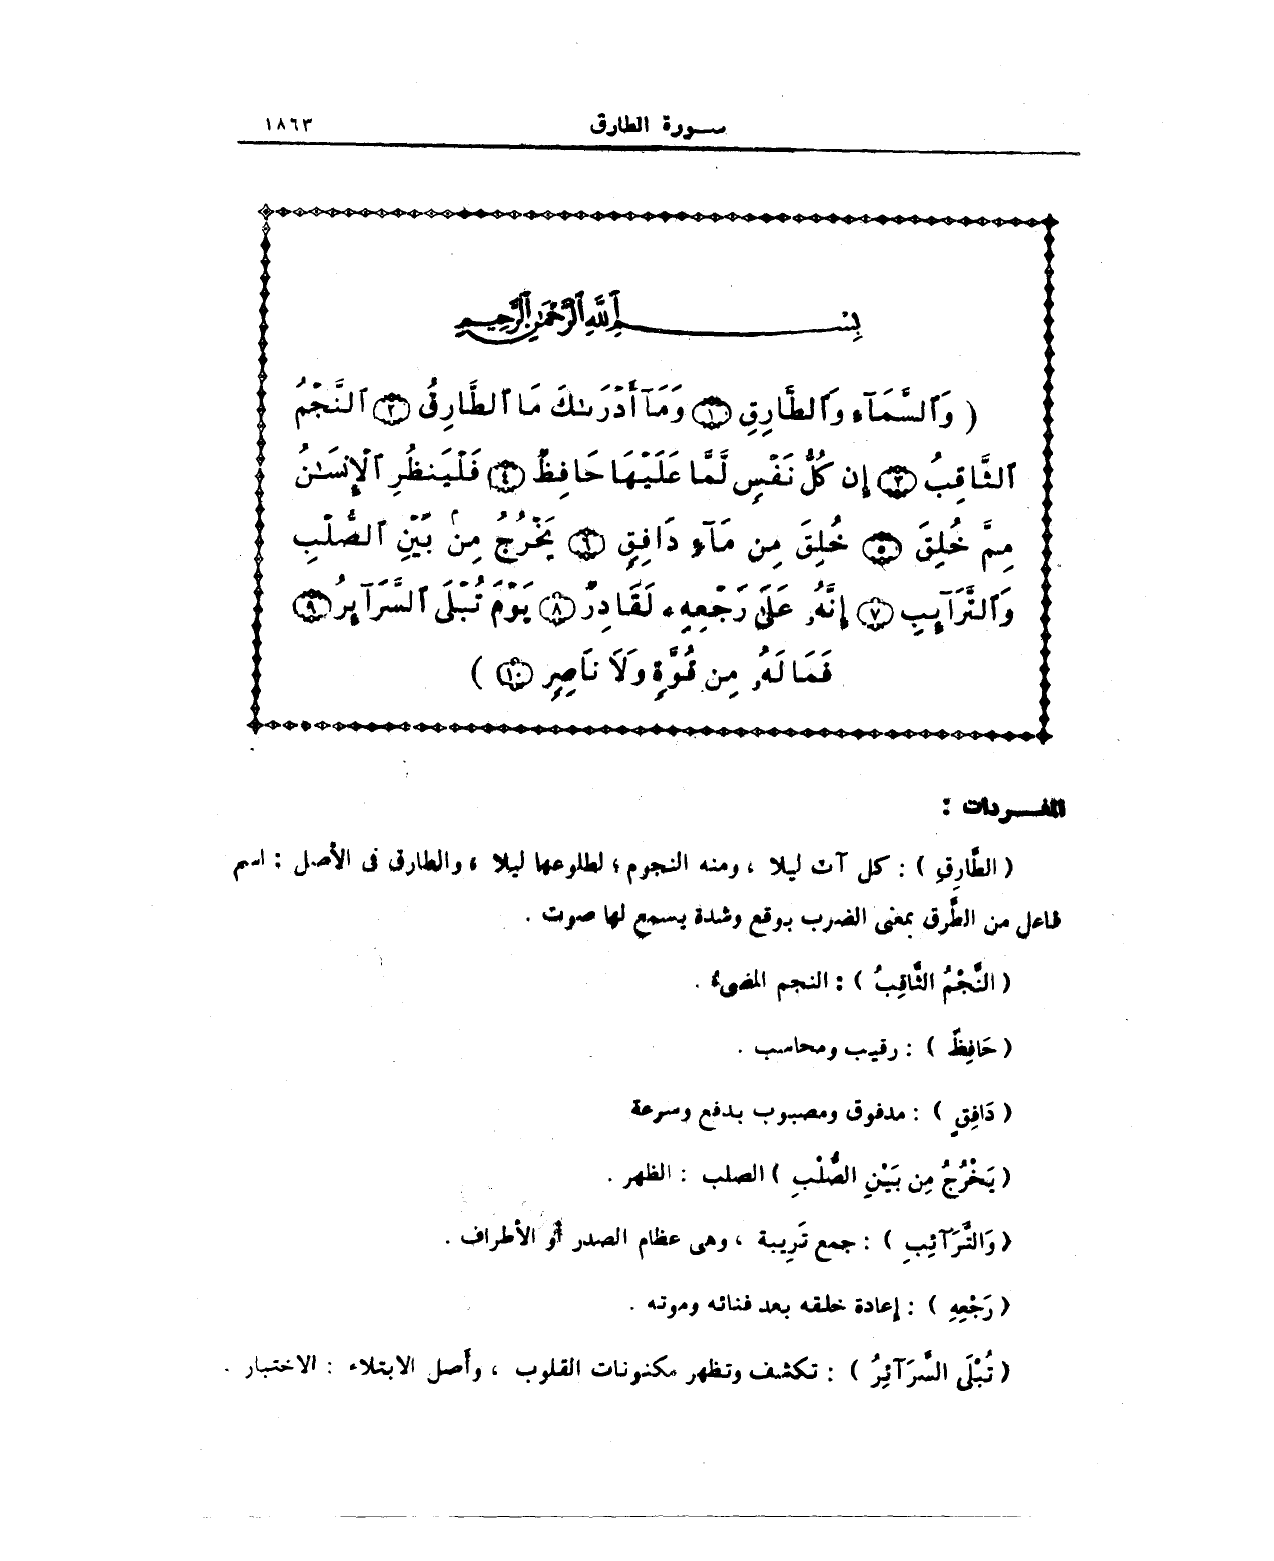 سورة الطارق ١٨٦٣
بِسْمِ ٱللَّهِ ٱلرَّحْمَٰنِ ٱلرَّحِيمِ
( وَٱلسَّمَآءِ وَٱلطَّارِقِ ۝١ وَمَآ أَدْرَىٰكَ مَا ٱلطَّارِقُ ۝٢ ٱلنَّجْمُ
ٱلثَّاقِبُ ۝٣ إِن كُلُّ نَفْسٍ لَّمَّا عَلَيْهَا حَافِظٌ ۝٤ فَلْيَنظُرِ ٱلْإِنسَٰنُ
مِمَّ خُلِقَ ۝٥ خُلِقَ مِن مَّآءٍ دَافِقٍ ۝٦ يَخْرُجُ مِنۢ بَيْنِ ٱلصُّلْبِ
وَٱلتَّرَآئِبِ ۝٧ إِنَّهُۥ عَلَىٰ رَجْعِهِۦ لَقَادِرٌ ۝٨ يَوْمَ تُبْلَى ٱلسَّرَآئِرُ ۝٩
فَمَا لَهُۥ مِن قُوَّةٍ وَلَا نَاصِرٍ ۝١٠ )
المفردات :
( الطَّارِقِ ) : كل آت ليلا ، ومنه النجوم ؛ لطلوعها ليلا ، والطارق فى الأصل : اسم
فاعل من الطَّرق بمعنى الضرب بوقع وشدة يسمع لها صوت .
( النَّجْمُ الثَّاقِبُ ) : النجم المضىء .
( حَافِظٌ ) : رقيب ومحاسب .
( دَافِقٍ ) : مدفوق ومصبوب بدفع وسرعة
( يَخْرُجُ مِن بَيْنِ الصُّلْبِ ) الصلب : الظهر .
( وَالتَّرَآئِبِ ) : جمع تَرِيبة ، وهى عظام الصدر أو الأطراف .
( رَجْعِهِ ) : إعادة خلقه بعد فنائه وموته .
( تُبْلَى السَّرَآئِرُ ) : تكشف وتظهر مكنونات القلوب ، وأَصل الابتلاء : الاختبار .